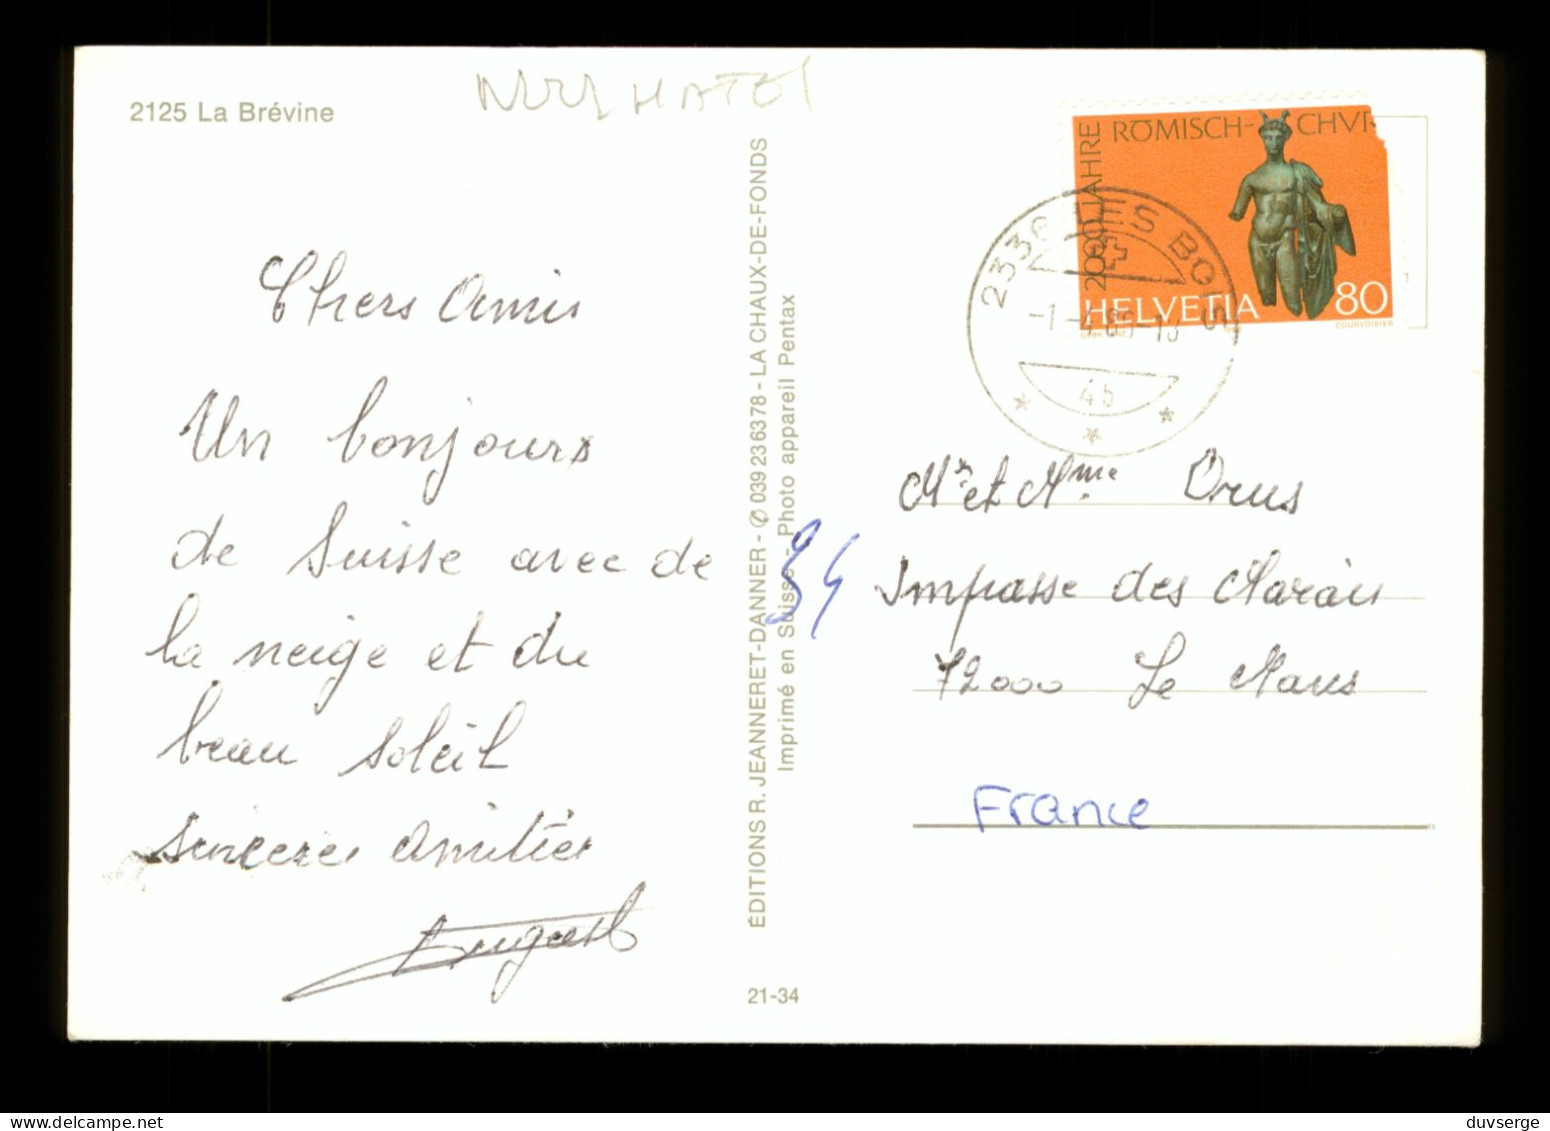 2125 La Brévine
Chers Amis
Un bonjours
de Suisse avec de
la neige et du
beau soleil
sinceres amitiés
ÉDITIONS R. JEANNERET-DANNER - ✆ 039 23 63 78 - LA CHAUX-DE-FONDS
Imprimé en Suisse - Photo appareil Pentax
21-34
2000 JAHRE
RÖMISCH-CHUR
HELVETIA 80
COURVOISIER
2336 LES BOIS
4b
Mr et Mme Orus
34
Impasse des Marais
72000 Le Mans
France
duvserge
delcampe.net